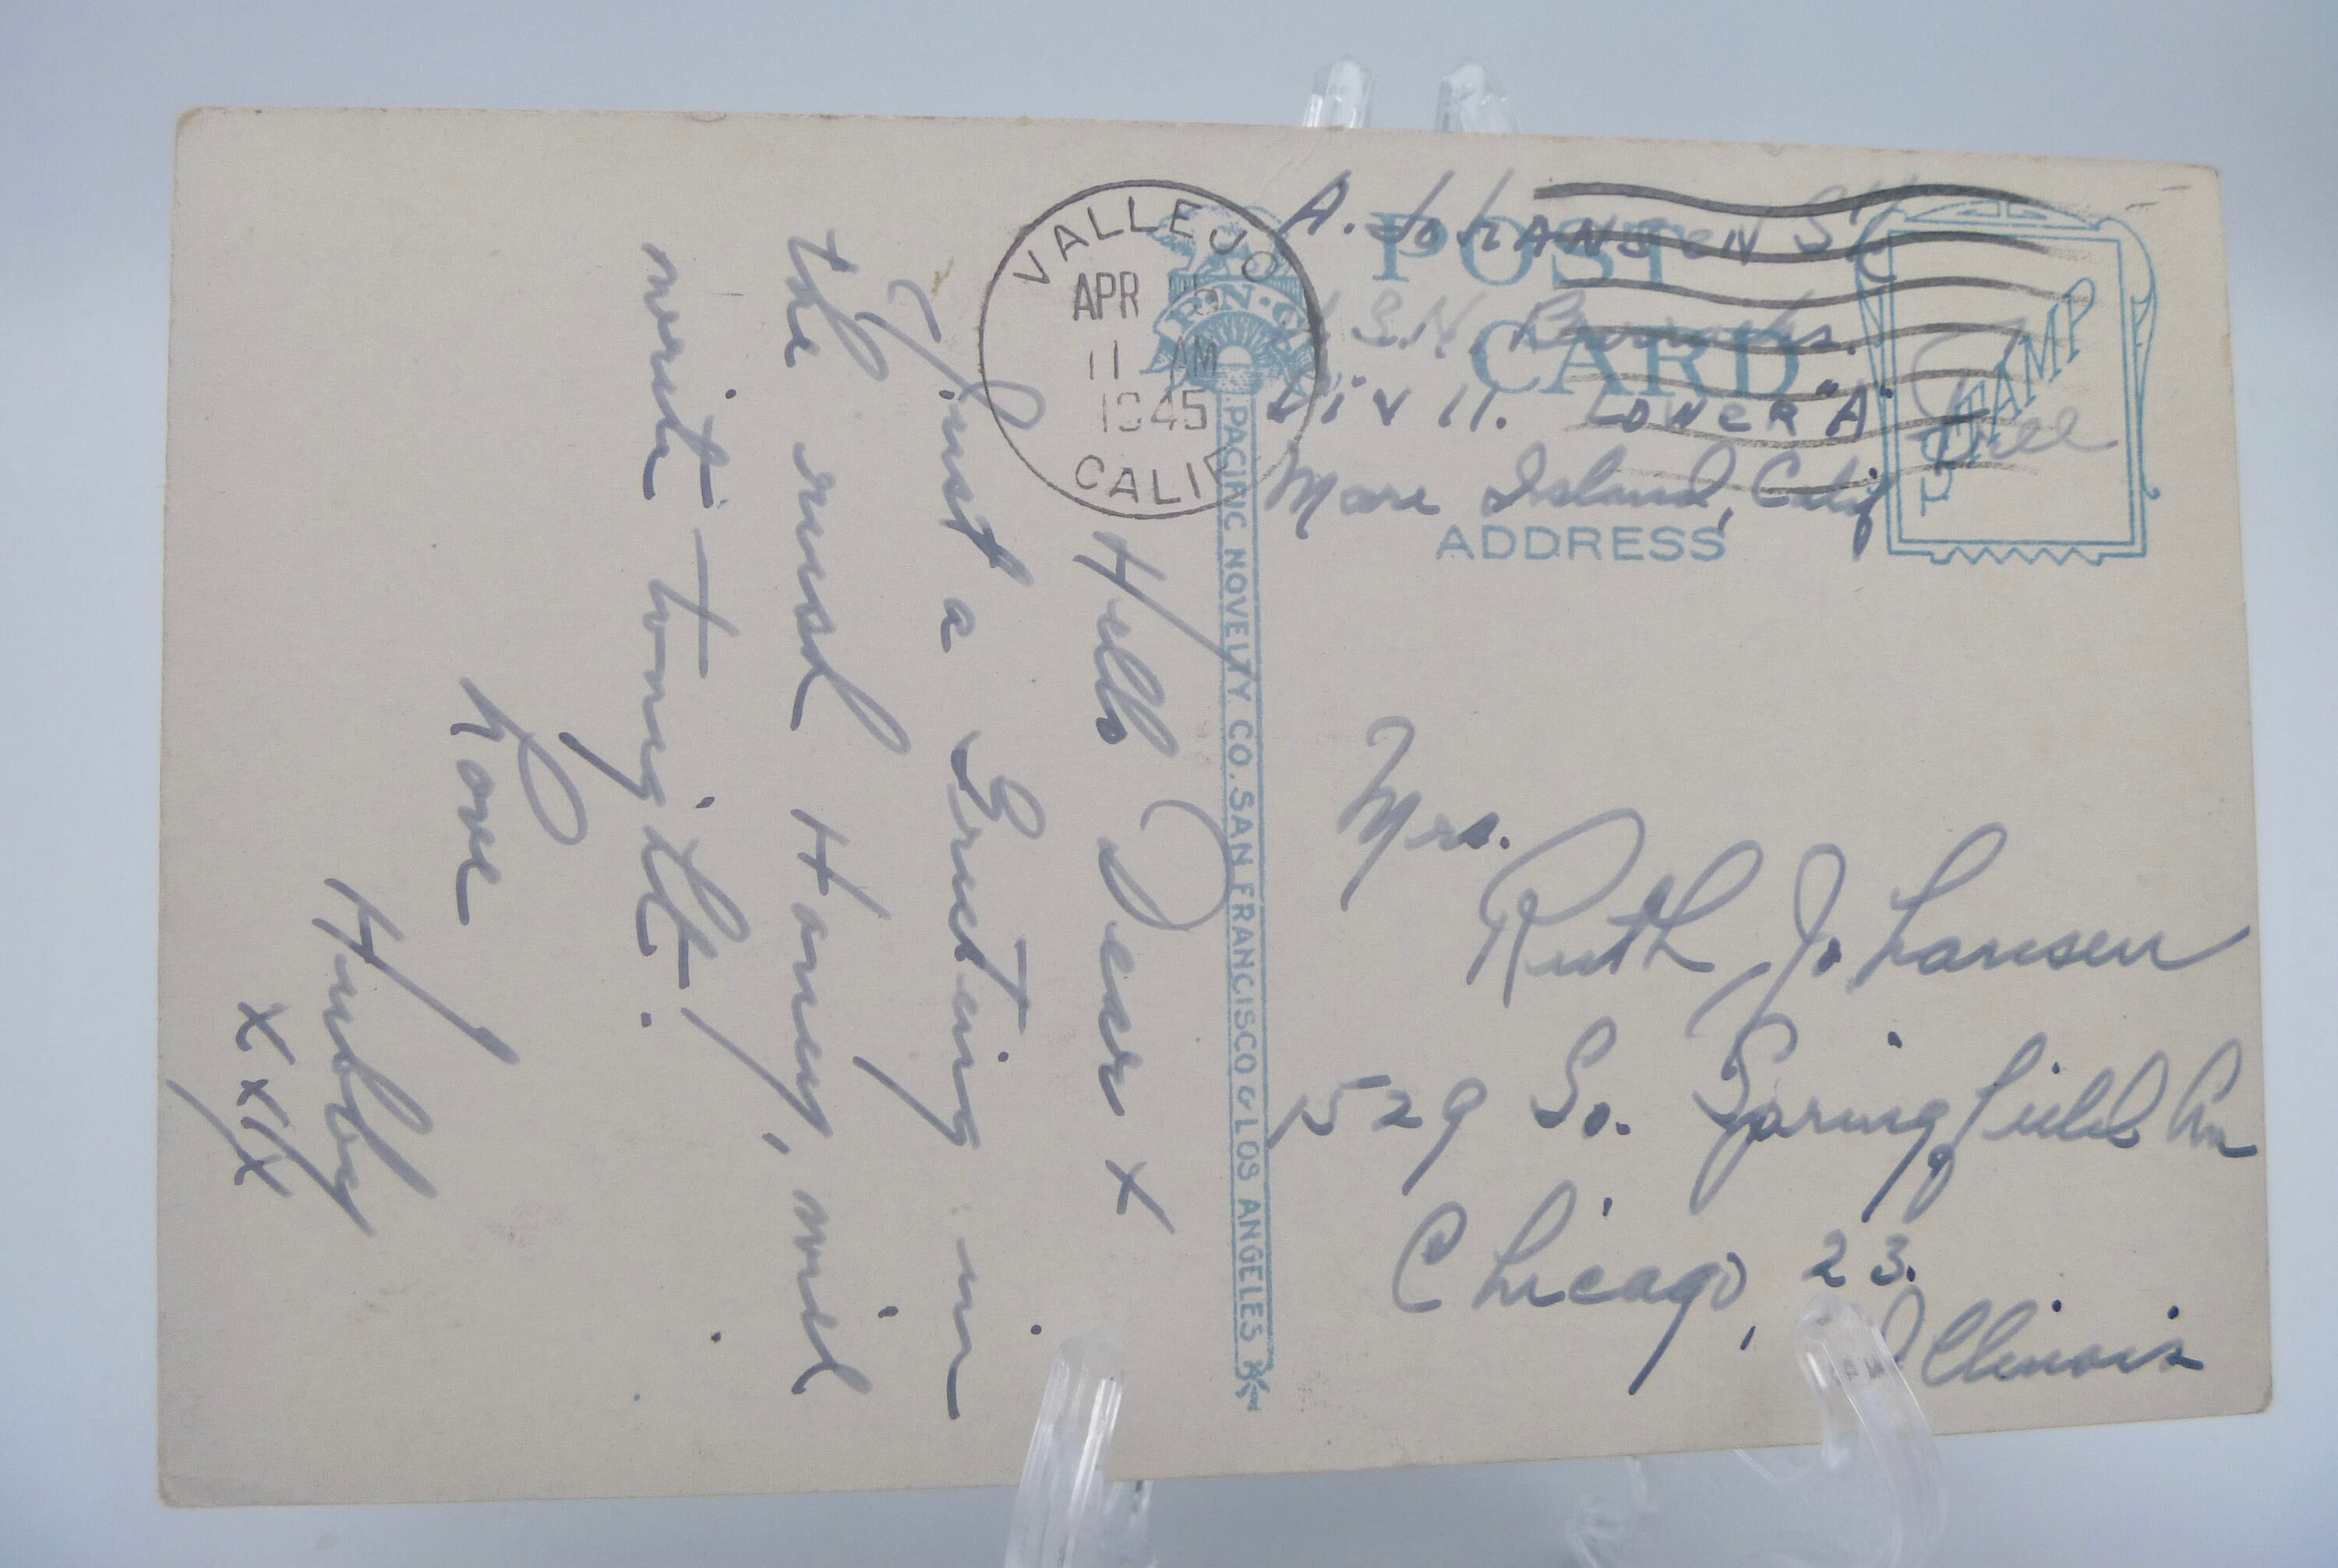 Hello Dear x
Just a Greeting in
the rush Honey, will
write tonight.
Love
Hubby
xxxx
VALLEJO
APR
11 AM
1945
CALIF
P.N.C.
PACIFIC NOVELTY CO. SAN FRANCISCO & LOS ANGELES
A. JohANSeN
U.S.N. Barracks.
Div 11. LOWeR "A"
Mare Island, Calif
Free
POST
CARD
ADDRESS
STAMP
Mrs.
Ruth Johansen
529 So. Springfield Av
Chicago, 23.
Illinois